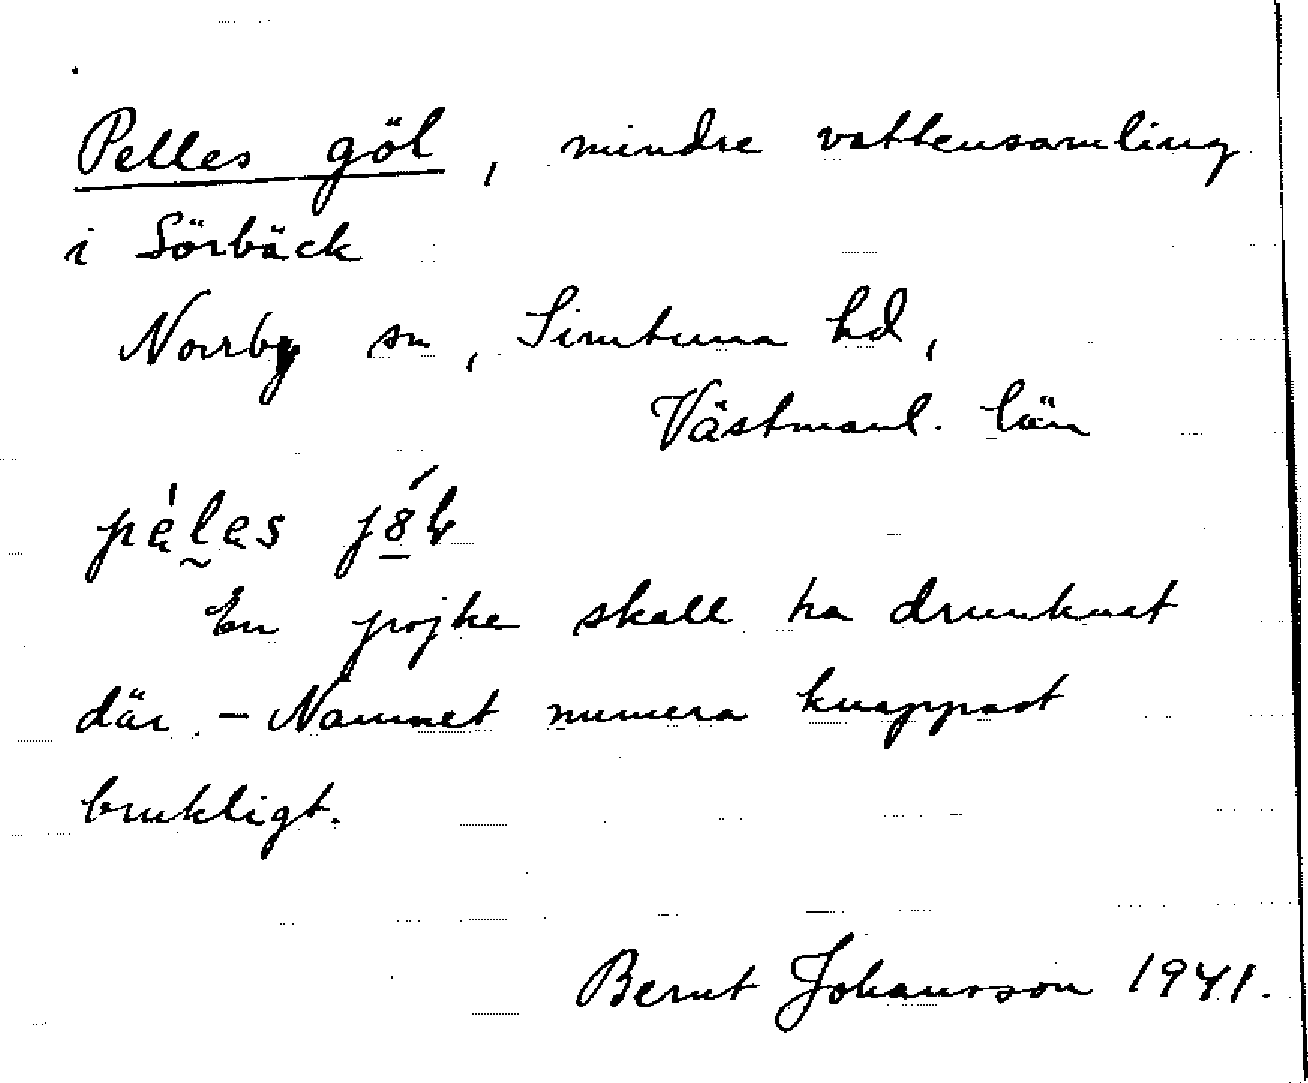 Pelles göl, mindre vattensamling
i Sörbäck
Norrby sn, Simtuna hd,
Västmanl. län
En pojke skall ha drunknat
där. - Namnet numera knappast
brukligt.
Bernt Johansson 1941.